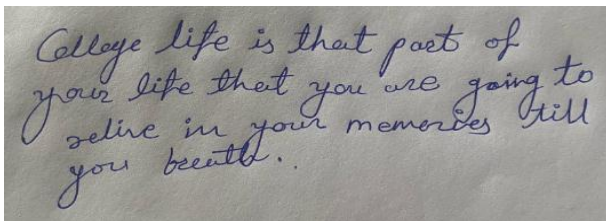 College life is that part of
your life that you are going to
relive in your memories till
you breath..